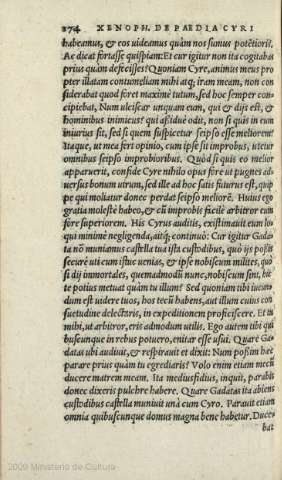 274 XENOPH. DE PAEDIA CYRI
habeamus, & eos uideamus quàm nos sumus potētiores.
Ac dicat fortasse quispiam: Et cur igitur non ita cogitabas
prius quàm defecisses? Quoniam Cyre, animus meus pro
pter illatam contumeliam mihi atq; iram meam, non con
siderabat quod foret maxime tutum, sed hoc semper con-
cipiebat, Num ulciscar unquam eum, qui & dijs est, &
hominibus inimicus? qui assiduè odit, non si quis in eum
iniurius sit, sed si quem suspicetur seipso esse meliorem?
Itaque, ut mea fert opinio, cum ipse sit improbus, utetur
omnibus seipso improbioribus. Quòd si quis eo melior
apparuerit, confide Cyre nihilo opus fore ut pugnes ad-
uersus bonum uirum, sed ille ad hoc satis futurus est, quip
pe qui moliatur donec perdat seipso meliorē. Huius ergo
gratia molestè habeo, & cū improbis facile arbitror eum
fore superiorem. His Cyrus auditis, existimauit eum lo-
qui minimè negligenda, atq; continuò: Cur igitur Gada
ta nō muniamus castella tua ista custodibus, quò ijs possis
securè uti cum istuc uenias, & ipse nobiscum milites, quò
si dij immortales, quemadmodū nunc, nobiscum sint, hic
te potius metuat quàm tu illum? Sed quoniam tibi iucun-
dum est uidere tuos, hos tecū habens, aut illum cuius con
suetudine delectaris, in expeditionem proficiscere. Et tu
mihi, ut arbitror, eris admodum utilis. Ego autem tibi qui
buscunque in rebus potuero, enitar esse usui. Quare Ga-
datas ubi audiuit, & respirauit et dixit: Num possim hæc
parare prius quàm tu egrediaris? Volo enim etiam mecū
ducere matrem meam. Ita mediusfidius, inquit, parabis
donec dixeris pulchre habere. Quare Gadatas ita abiens
custodibus castella muniuit unà cum Cyro. Parauit etiam
omnia quibuscunque domus magna bene habetur. Duce-
bat
2009 Ministerio de Cultura